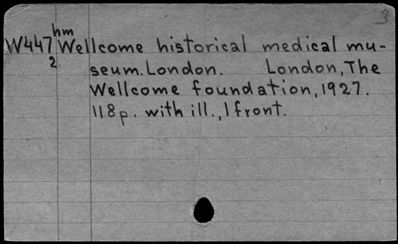 3
hm
W447 Wellcome historical medical mu-
2 seum. London. London, The
Wellcome foundation, 1927.
118p. with ill., 1 front.